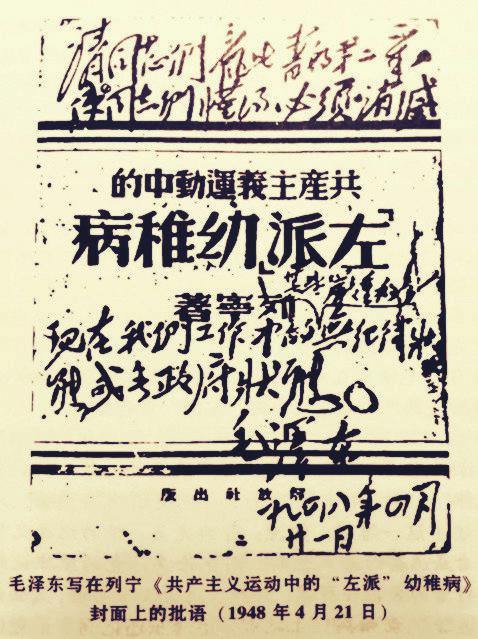 請同志們看此書的第二章,
使同志們懂得,必須消滅
共產主義運動中的
「左派」幼稚病
列寧著
现在我们工作中的無纪律狀
態或無政府狀態。
毛澤东
解放社出版
一九四八年四月
廿一日
毛泽东写在列宁《共产主义运动中的“左派”幼稚病》
封面上的批语(1948年4月21日)